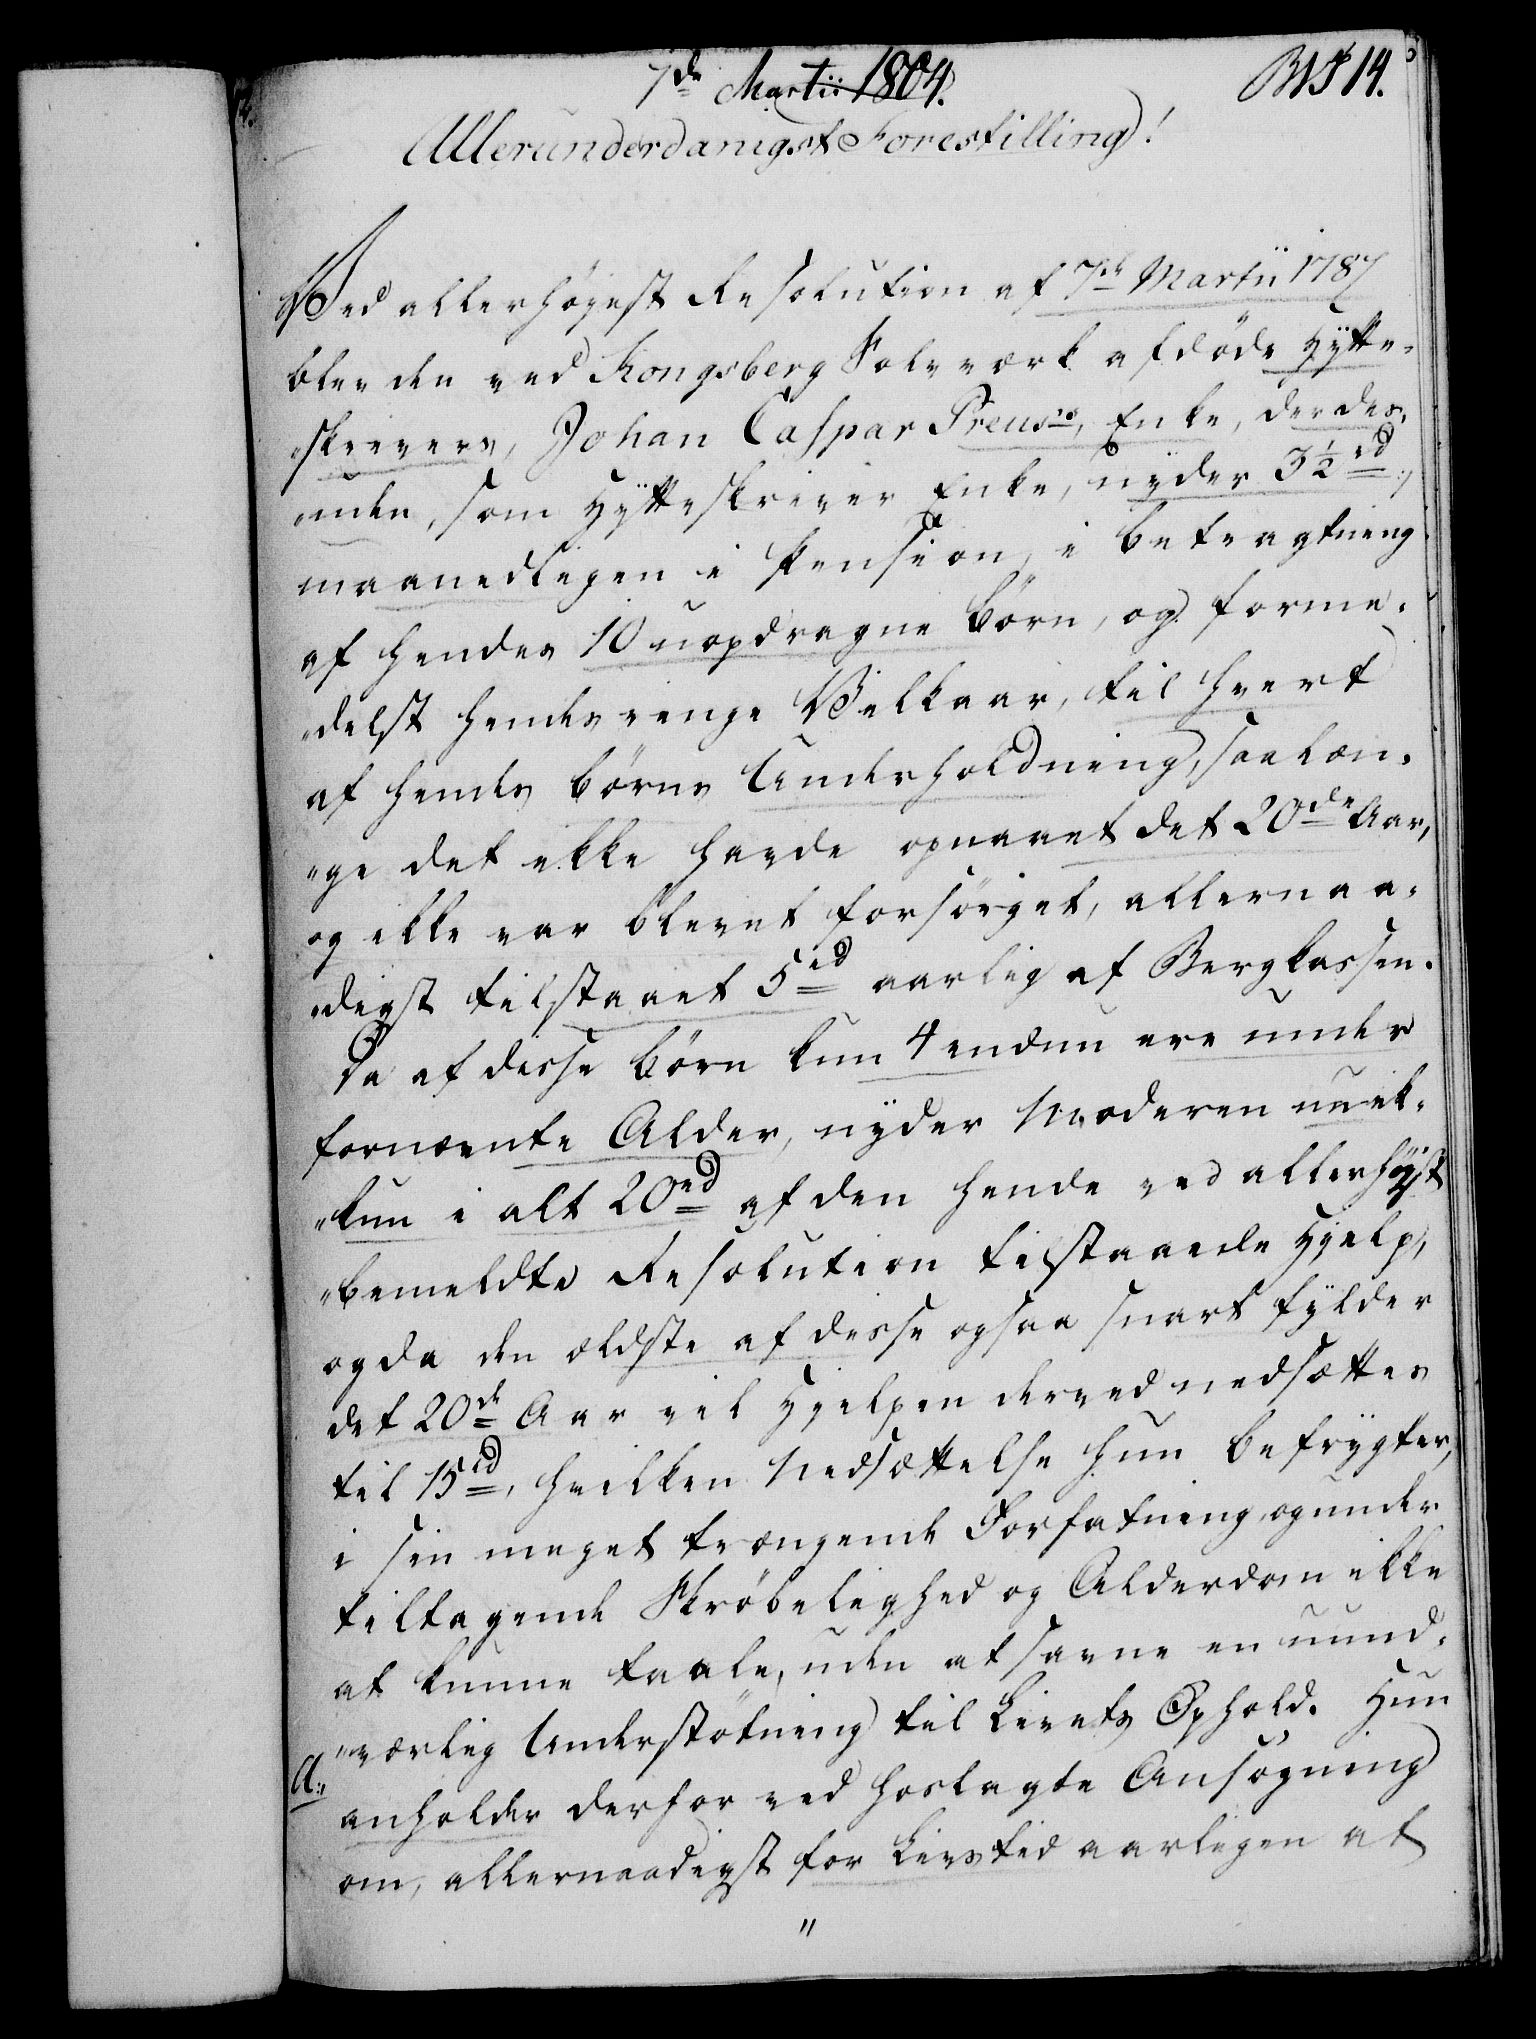 7de Martii 1804.
BWS 14.
Allerunderdanigst Forestilling!
Ved allerhøyest Resolution af 7de Martii 1787
blev den ved Kongsberg Sølvværk afdøde Hytte-
"skrivers, Johan Caspar Preuss, Enke, der des-
"uden, som Hytteskriver Enke, nyder 3½ rd:
maanedligen i Pension, i betragtning
af hendes 10 uopdragne Børn, og forme-
"delst hendes ringe Vilkaar, til hvert
af hendes børns Underholdning, saalæn-
"ge det ikke havde opnaaet det 20de Aar,
og ikke var blevet forsörget, allernaa-
"digst tilstaaet 5 rd aarlig af Bergkassen.
Da af disse Börn kun 4 endnu ere under
fornævnte Alder, nyder Moderen nu ik-
"kun i alt 20 rd af den hende ved allerhöyst
"bemeldte Resolution tilstaaede Hjelp,
og da den ældste af disse ogsaa snart fylder
det 20de Aar vil Hjelpen derved nedsættes
til 15 rd, hvilken Nedsættelse hun befrygter,
i sin meget trængende Forfatning og under
tiltagende Skröbelighed og Alderdom ikke
at kunne taale, uden at savne en uund-
"værlig Understötning til Livets Ophold. Hun
A:
anholder derfor ved hoslagte Ansögning
om, allernaadigst for Livstid aarligen at
"